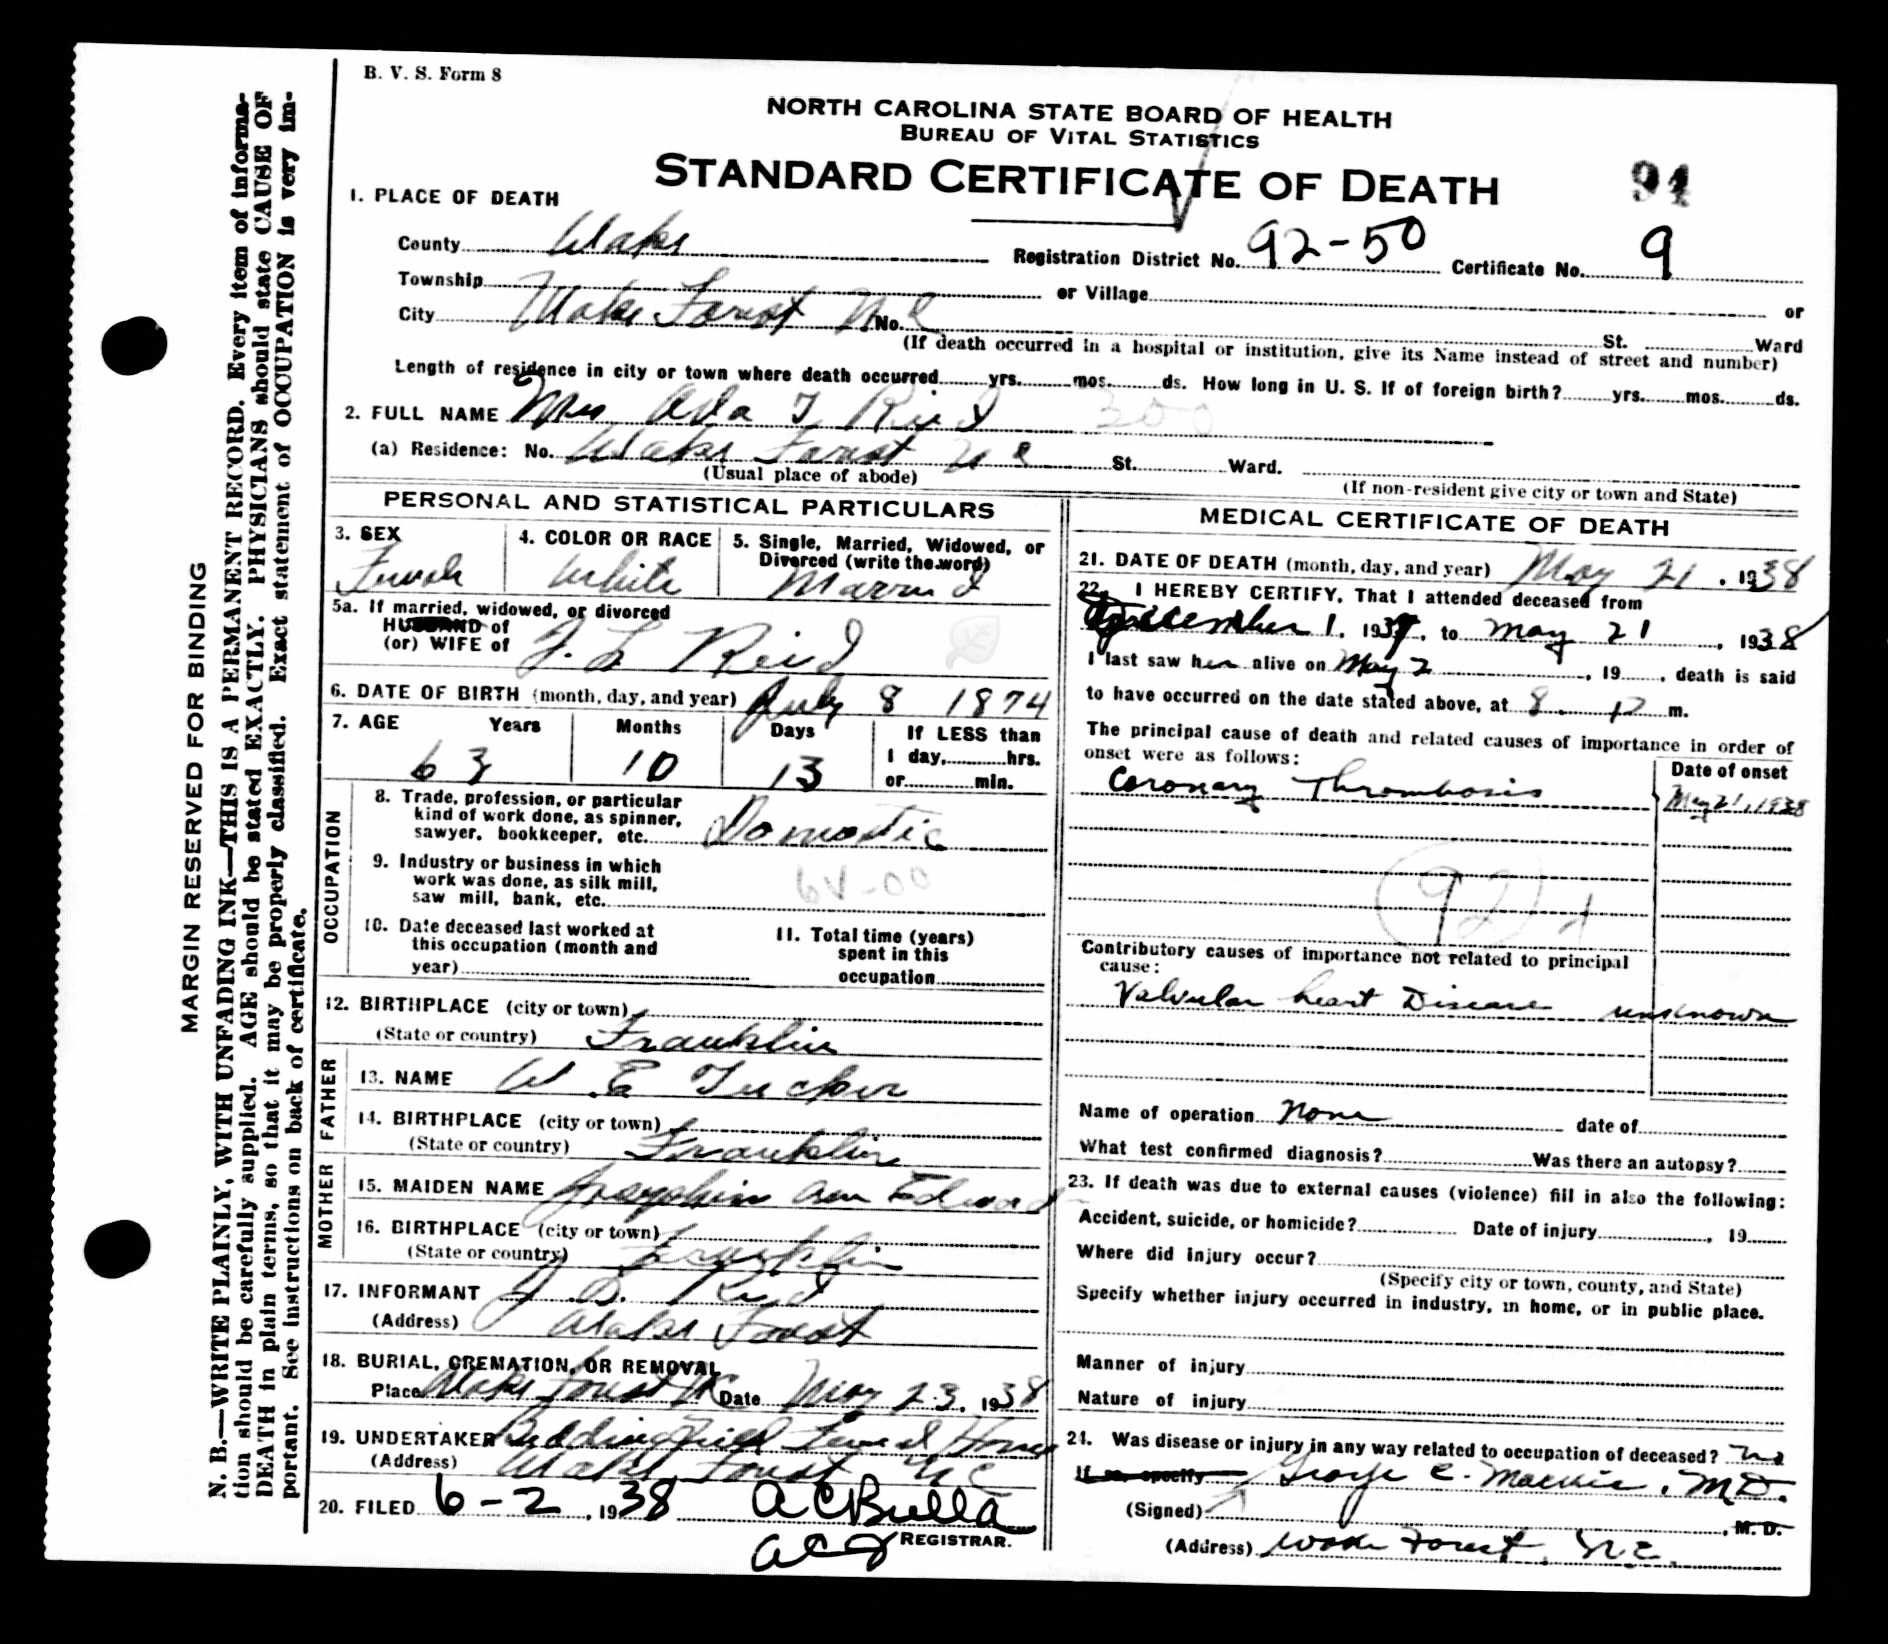 B. V. S. Form 8
NORTH CAROLINA STATE BOARD OF HEALTH
BUREAU OF VITAL STATISTICS
STANDARD CERTIFICATE OF DEATH
94
1. PLACE OF DEATH
County Wake Registration District No. 92-50 Certificate No. 9
Township or Village or
City Wake Forest N C No. St. Ward
(If death occurred in a hospital or institution, give its Name instead of street and number)
Length of residence in city or town where death occurred yrs. mos. ds. How long in U. S. If of foreign birth? yrs. mos. ds.
2. FULL NAME Mrs Ada T Reid 300
(a) Residence: No. Wake Forest N C St. Ward.
(Usual place of abode) (If non-resident give city or town and State)
PERSONAL AND STATISTICAL PARTICULARS
3. SEX 4. COLOR OR RACE 5. Single, Married, Widowed, or
Divorced (write the word)
Female White Married
5a. If married, widowed, or divorced
HUSBAND of
(or) WIFE of J. L Reid
6. DATE OF BIRTH (month, day, and year) July 8 1874
7. AGE Years Months Days If LESS than
1 day, hrs.
63 10 13 or min.
OCCUPATION
8. Trade, profession, or particular
kind of work done, as spinner,
sawyer, bookkeeper, etc. Domestic
9. Industry or business in which
work was done, as silk mill,
saw mill, bank, etc. 6V-00
10. Date deceased last worked at
this occupation (month and
year)
11. Total time (years)
spent in this
occupation
12. BIRTHPLACE (city or town)
(State or country) Franklin
FATHER
13. NAME W. E Tucker
14. BIRTHPLACE (city or town)
(State or country) Franklin
MOTHER
15. MAIDEN NAME Josephin Ann Edward
16. BIRTHPLACE (city or town)
(State or country) Franklin
17. INFORMANT Reid
(Address) Wake Forest
18. BURIAL, CREMATION, OR REMOVAL
Place Wake Forest NC Date May 23, 1938
19. UNDERTAKER Beddingfield Funeral Home
(Address) Wake Forest NC
20. FILED 6-2, 1938 A C Bulla
REGISTRAR.
MEDICAL CERTIFICATE OF DEATH
21. DATE OF DEATH (month, day, and year) May 21, 1938
22. I HEREBY CERTIFY, That I attended deceased from
December 1, 1937, to May 21, 1938
I last saw her alive on May 2, 19 , death is said
to have occurred on the date stated above, at 8 m.
The principal cause of death and related causes of importance in order of
onset were as follows:
Date of onset
Coronary Thrombosis May 21, 1938
92
Contributory causes of importance not related to principal
cause:
Valvular heart Disease unknown
Name of operation None date of
What test confirmed diagnosis? Was there an autopsy?
23. If death was due to external causes (violence) fill in also the following:
Accident, suicide, or homicide? Date of injury , 19
Where did injury occur?
(Specify city or town, county, and State)
Specify whether injury occurred in industry, in home, or in public place.
Manner of injury
Nature of injury
24. Was disease or injury in any way related to occupation of deceased? no
If so, specify George C. Mackie, M.D.
(Signed) , M. D.
(Address) Wake Forest, N.C.
MARGIN RESERVED FOR BINDING
N. B.—WRITE PLAINLY, WITH UNFADING INK—THIS IS A PERMANENT RECORD. Every item of informa-
tion should be carefully supplied. AGE should be stated EXACTLY. PHYSICIANS should state CAUSE OF
DEATH in plain terms, so that it may be properly classified. Exact statement of OCCUPATION is very im-
portant. See instructions on back of certificate.